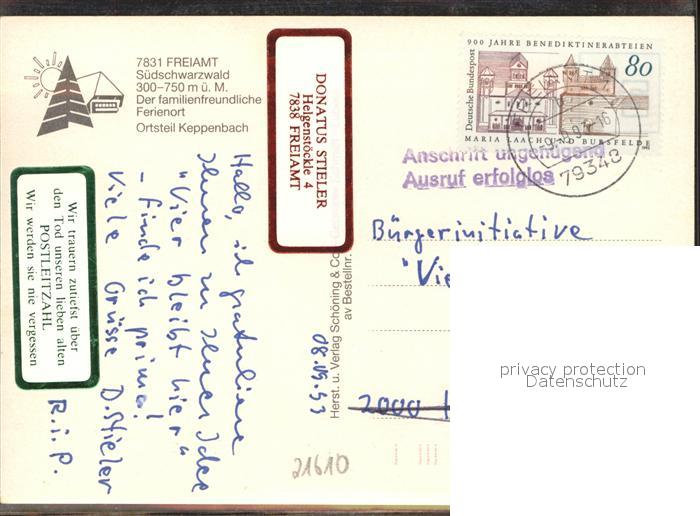 7831 FREIAMT
Südschwarzwald
300–750 m ü. M.
Der familienfreundliche
Ferienort
Ortsteil Keppenbach
DONATUS STIELER
Helgenstöckle 4
7838 FREIAMT
900 JAHRE BENEDIKTINERABTEIEN
80
Deutsche Bundespost
MARIA LAACH UND BURSFELDE
79348
Anschrift ungenügend
Ausruf erfolglos
Wir trauern zutiefst über
den Tod unseren lieben alten
POSTLEITZAHL
Wir werden sie nie vergessen
R.i.P.
Hallo, ich gratuliere
Ihnen zu Ihrer Idee
"Vier bleibt hier"
– finde ich prima!
Viele Grüsse D. Stieler
08.09.93
Herst. u. Verlag Schöning & Co
av Bestellnr.
Bürgerinitiative
"Vie
2000
21610
privacy protection
Datenschutz